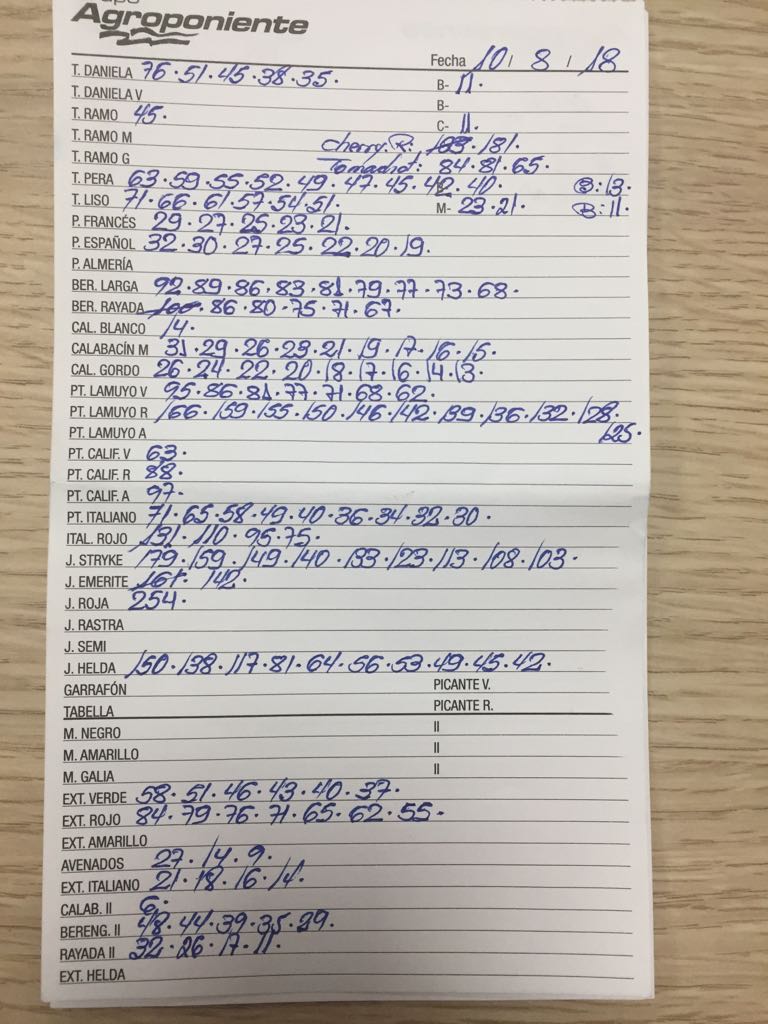 Agroponiente
Fecha 10 / 8 / 18
T. DANIELA 76·51·45·38·35· B- 11·
T. DANIELA V B-
T. RAMO 45· C- 11·
T. RAMO M cherry.R: 181·
T. RAMO G 84·81·65·
T. PERA 63·59·55·52·49·47·45·42·40· B:13·
T. LISO 71·66·61·57·54·51· M- 23·21· B:11·
P. FRANCÉS 29·27·25·23·21·
P. ESPAÑOL 32·30·27·25·22·20·19·
P. ALMERÍA
BER. LARGA 92·89·86·83·81·79·77·73·68·
BER. RAYADA 100·86·80·75·71·67·
CAL. BLANCO 14·
CALABACÍN M 31·29·26·23·21·19·17·16·15·
CAL. GORDO 26·24·22·20·18·17·16·14·13·
PT. LAMUYO V 95·86·81·77·71·68·62·
PT. LAMUYO R 166·159·155·150·146·142·139·136·132·128·
PT. LAMUYO A 125·
PT. CALIF. V 63·
PT. CALIF. R 88·
PT. CALIF. A 97·
PT. ITALIANO 71·65·58·49·40·36·34·32·30·
ITAL. ROJO 131·110·95·75·
J. STRYKE 179·159·149·140·133·123·113·108·103·
J. EMERITE 161· 142·
J. ROJA 254·
J. RASTRA
J. SEMI
J. HELDA 150·138·117·81·64·56·53·49·45·42·
GARRAFÓN PICANTE V.
TABELLA PICANTE R.
M. NEGRO II
M. AMARILLO II
M. GALIA II
EXT. VERDE 58·51·46·43·40·37·
EXT. ROJO 84·79·76·71·65·62·55·
EXT. AMARILLO
AVENADOS 27·14·9·
EXT. ITALIANO 21·18·16·14·
CALAB. II 6·
BERENG. II 48·44·39·35·29·
RAYADA II 32·26·17·11·
EXT. HELDA